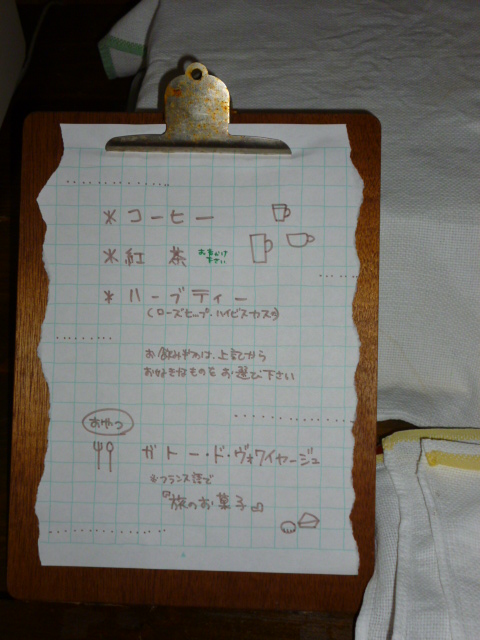 ＊コーヒー
＊紅茶 お声かけ下さい
＊ハーブティー
(ローズヒップ・ハイビスカスの)
お飲み物は、上記から
お好きなものをお選び下さい
おやつ
ガトー・ド・ヴォワイヤージュ
＊フランス語で
『旅のお菓子』